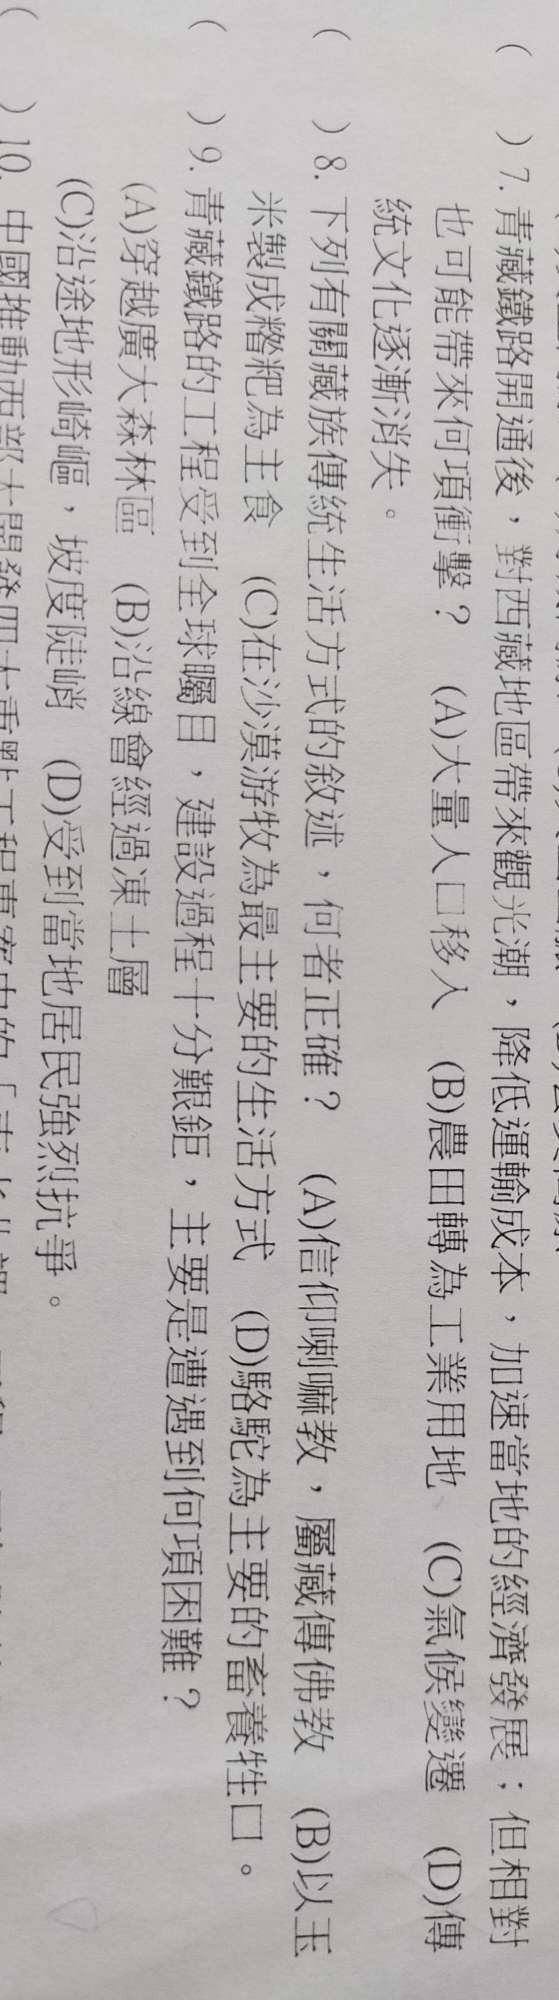 ( ) 7. 青藏鐵路開通後，對西藏地區帶來觀光潮，降低運輸成本，加速當地的經濟發展；但相對
也可能帶來何項衝擊？ (A)大量人口移入 (B)農田轉為工業用地 (C)氣候變遷 (D)傳
統文化逐漸消失。
( ) 8. 下列有關藏族傳統生活方式的敘述，何者正確？ (A)信仰喇嘛教，屬藏傳佛教 (B)以玉
米製成糌粑為主食 (C)在沙漠游牧為最主要的生活方式 (D)駱駝為主要的畜養牲口。
( ) 9. 青藏鐵路的工程受到全球矚目，建設過程十分艱鉅，主要是遭遇到何項困難？
(A)穿越廣大森林區 (B)沿線會經過凍土層
(C)沿途地形崎嶇，坡度陡峭 (D)受到當地居民強烈抗爭。
( ) 10. 中國推動西部大開發四大重點工程專案中的「